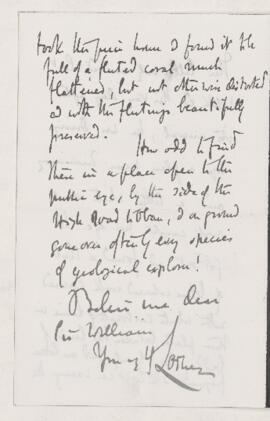 took the piece home I found it to be
full of a fluted coral much
flattened, but not otherwise distorted
as with the flutings beautifully
preserved.
How odd to find
these in a place open to the
public eye, by the side of the
High Road to Oban, & on ground
gone over often by every species
of geological explorer!
Believe me dear
Sir William
Yours